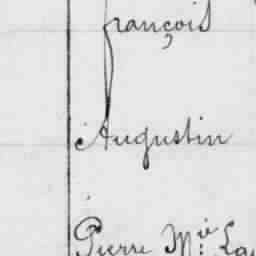 françois
Augustin
Pierre M.ie